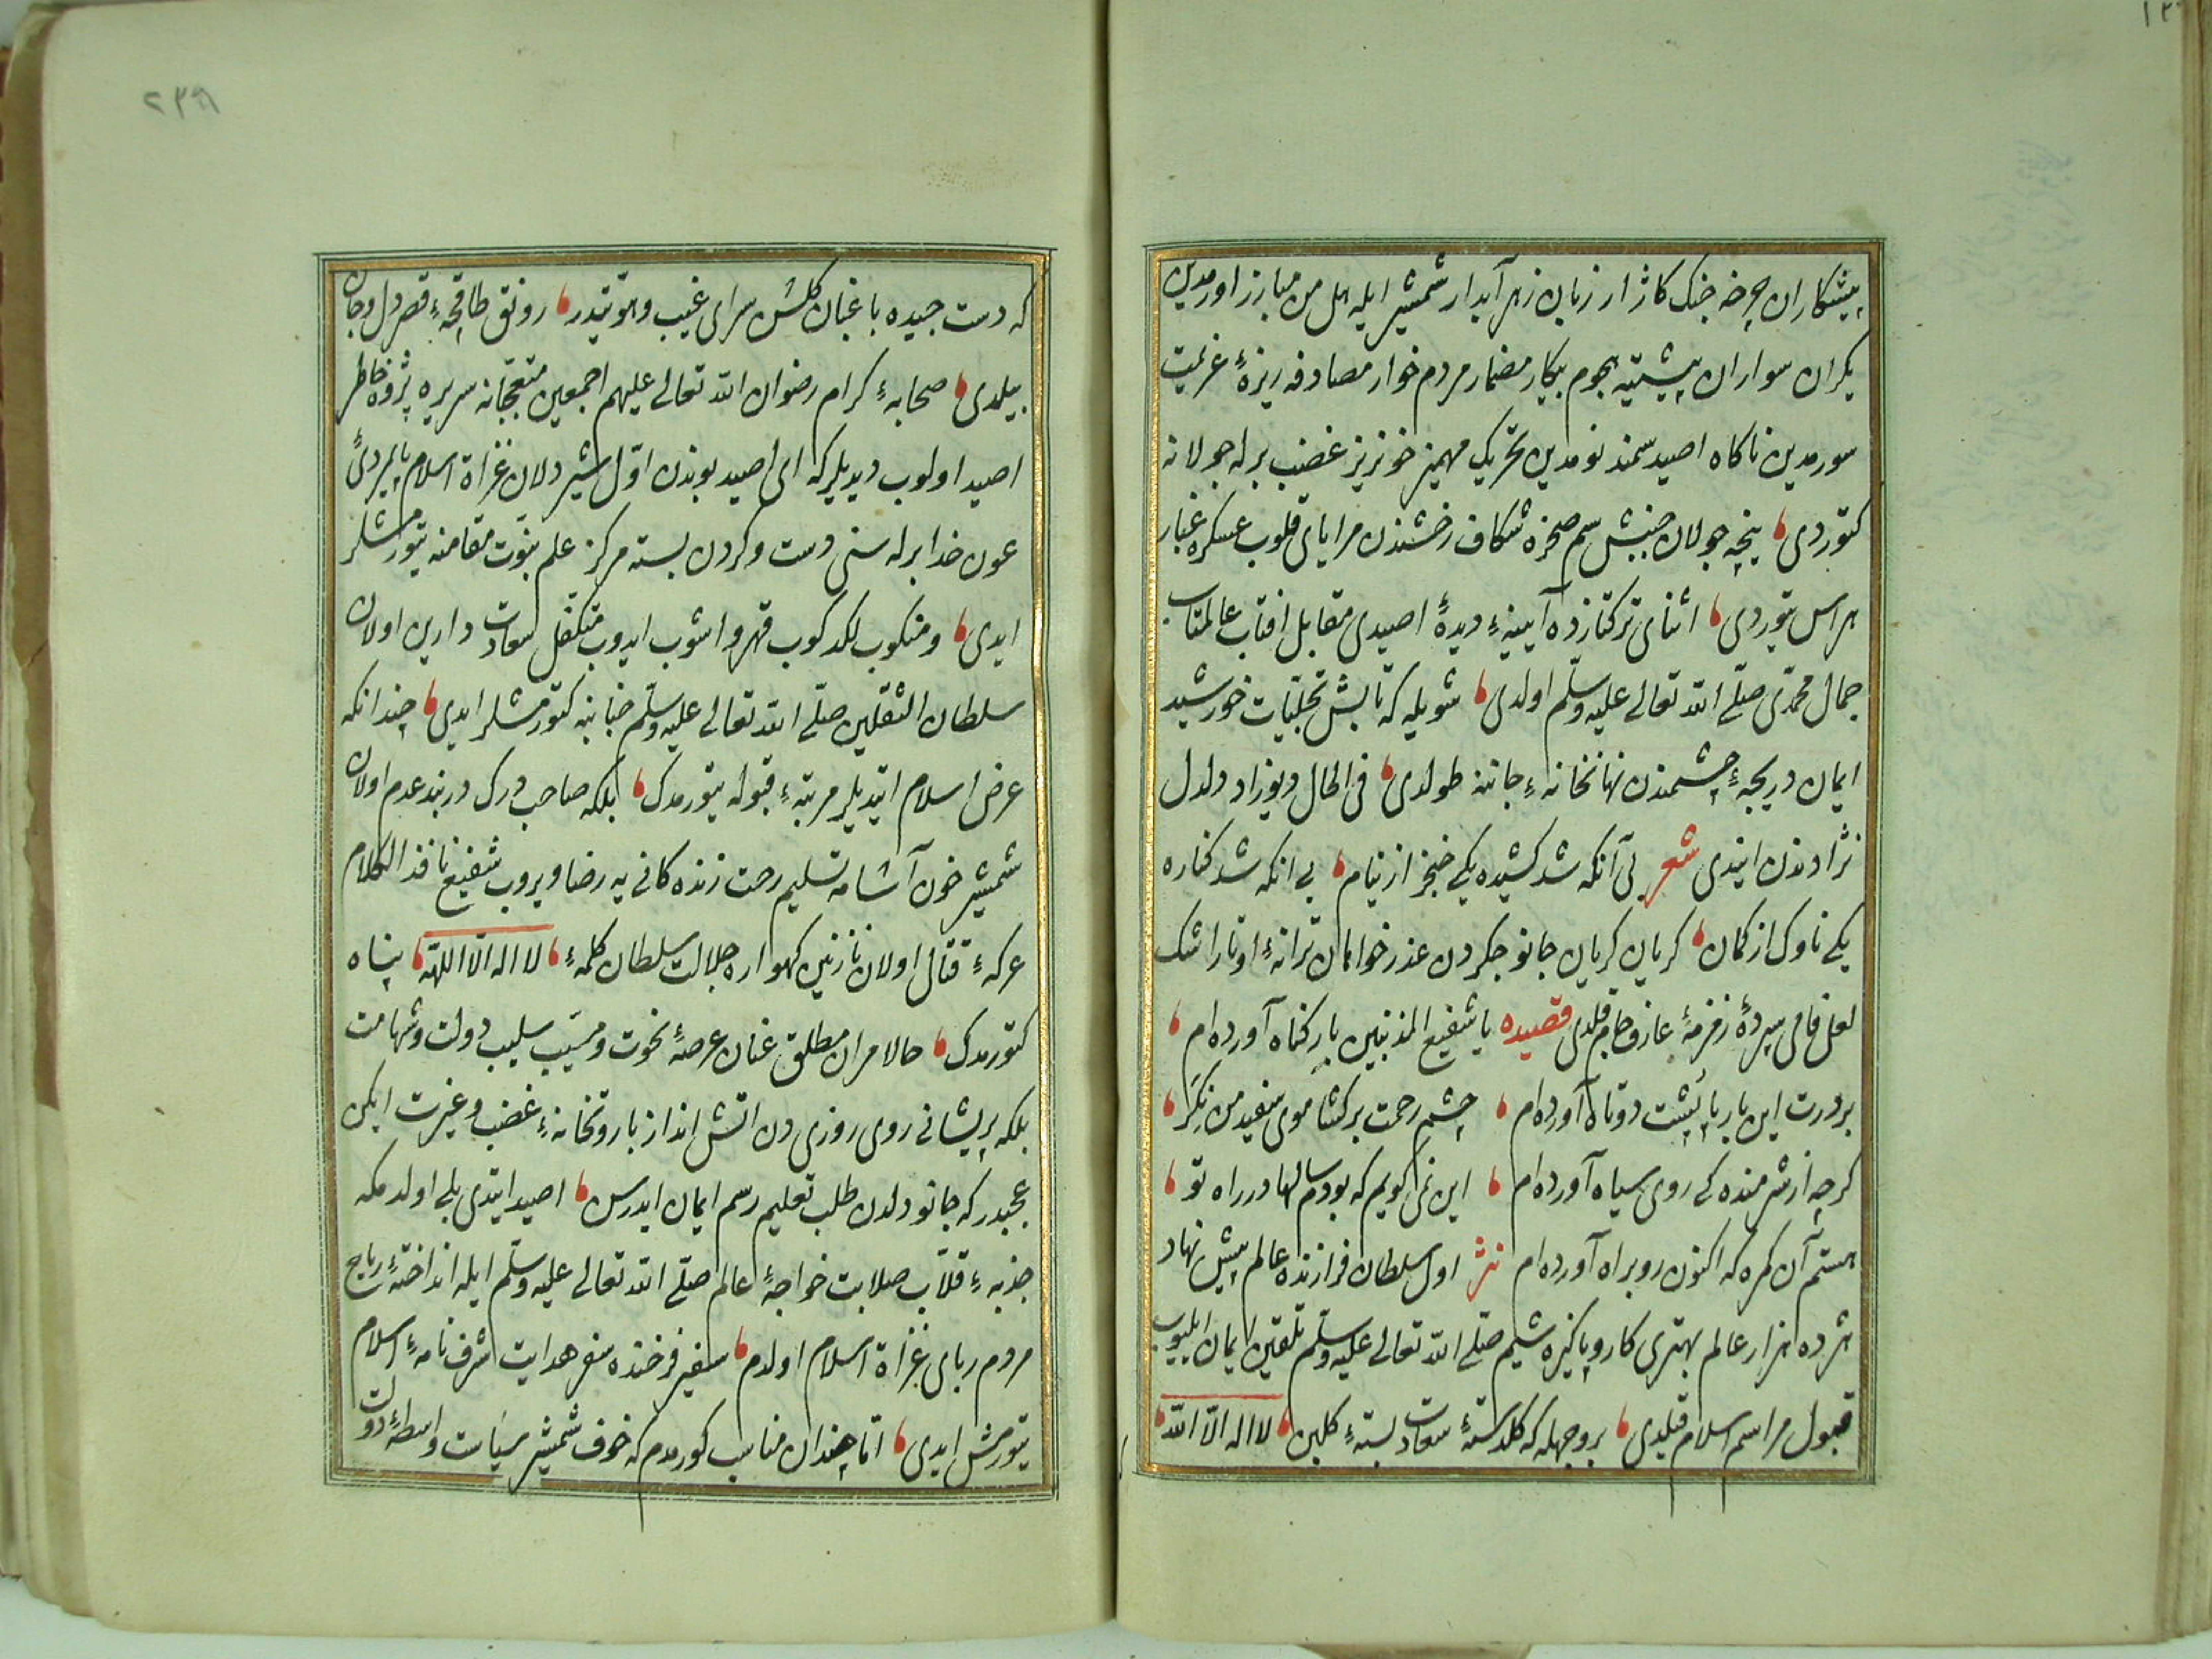 پیشکاران چرخه جنک کاژار زبان زهر آبدار شمشیر ایله هل من مبارز اورمدین
یکران سواران پیشته هجوم پیکار مضمار مردم خوار مصادفه ریزهٔ عزیمت
سورمدین ناکاه اصید سمند نومدین تحریک مهمیز خونریز غضب برله جولانه
کتوردی پنجه جولان جنبش سم صخره شکاف رخشندن مرایای قلوب عسکره غبار
هراس یتوردی اثنای ترکتازده آیینهٔ دیدهٔ اصیدی مقابل افتاب عالمتاب
جمال محمدی صلی الله تعالی علیه وسلم اولدی شویله که تابش تجلیات خورشید
ایمان دریچهٔ چشمندن نهانخانهٔ جاننه طولدی فی الحال دیوزاد دلدل
نژادندن ایندی شعر بی آنکه شد کشیده یکی خنجر از نیام بی انکه شد کناره
یکی ناوک از کمان کریان کریان جانو جکردن عذر خواهان ترانهٔ اوتار اشک
لعل فامی سپردهٔ زمزمهٔ عازف جام قلدی قصیده یا شفیع المذنبین بار کناه آورده‌ام
بردرت این بار با پشت دوتاه آورده‌ام چشم رحمت برکشا موی سفید من نکر
کرچه از شرمنده کی روی سیاه آورده‌ام این نمی کویم که بودم سالها در راه تو
هستم آن کمره که اکنون رو براه آورده‌ام نثر اول سلطان فرازنده عالم پیش نهاد
هژده هزار عالم بهتری کار و پاکیزه شیم صلی الله تعالی علیه وسلم تلقین ایمان ایلیوب
قبول مراسم اسلام قلدی بر وجهله که کلدستهٔ سعادت بستهٔ کلبن لا اله الا الله
که دست چیده باغبان کلشن سرای غیب و هویتدر رونق طاقچهٔ قصر دل و جان
بیلدی صحابهٔ کرام رضوان الله تعالی علیهم اجمعین متعجبانه سریره پژوه خاطر
اصید اولوب دیدیلر که ای اصید بوندن اول شیر دلان غزاة اسلام پایمردیٔ
عون خدا برله سنی دست و کردن بسته مرکز علم نبوت مقامنه یتورمشلر
ایدی و منکوب لکد کوب قهر و اشوب ایدوب متکفل سعادت دارین اولان
سلطان الثقلین صلی الله تعالی علیه وسلم جنابنه کتورمشلر ایدی چندانکه
عرض اسلام ایتدیلر مرتبهٔ قبوله یتورمدک بلکه صاحب درک دربند عدم اولان
شمشیر خون آشامه تسلیم رخت زنده کانی یه رضا ویروب شفیع نافذ الکلام
عرکهٔ قتال اولان نازنین کهواره جلالت سلطان کلمهٔ لا اله الا الله پناه
کتورمدک حالا مران مطلق عنان عرصهٔ نخوت و مسیب سلیب دولت و شهامت
بلکه پریشانی روی روزی دن اتش انداز باروتخانهٔ غضب و غیرت ایکن
عجبدر که جانو دلدن طلب تعلیم رسم ایمان ایدرسن اصید ایتدی بلی اولدمکه
جذبهٔ قلاب صلابت خواجهٔ عالم صلی الله تعالی علیه وسلم ایله انداختهٔ رماح
مردم ربای غزاة اسلام اولدم سفیر فرخنده سفر هدایت شرف نامهٔ اسلام
یتورمش ایدی اما چندان مناسب کورمدم که خوف شمشیر سیاست واسطهٔ دولت